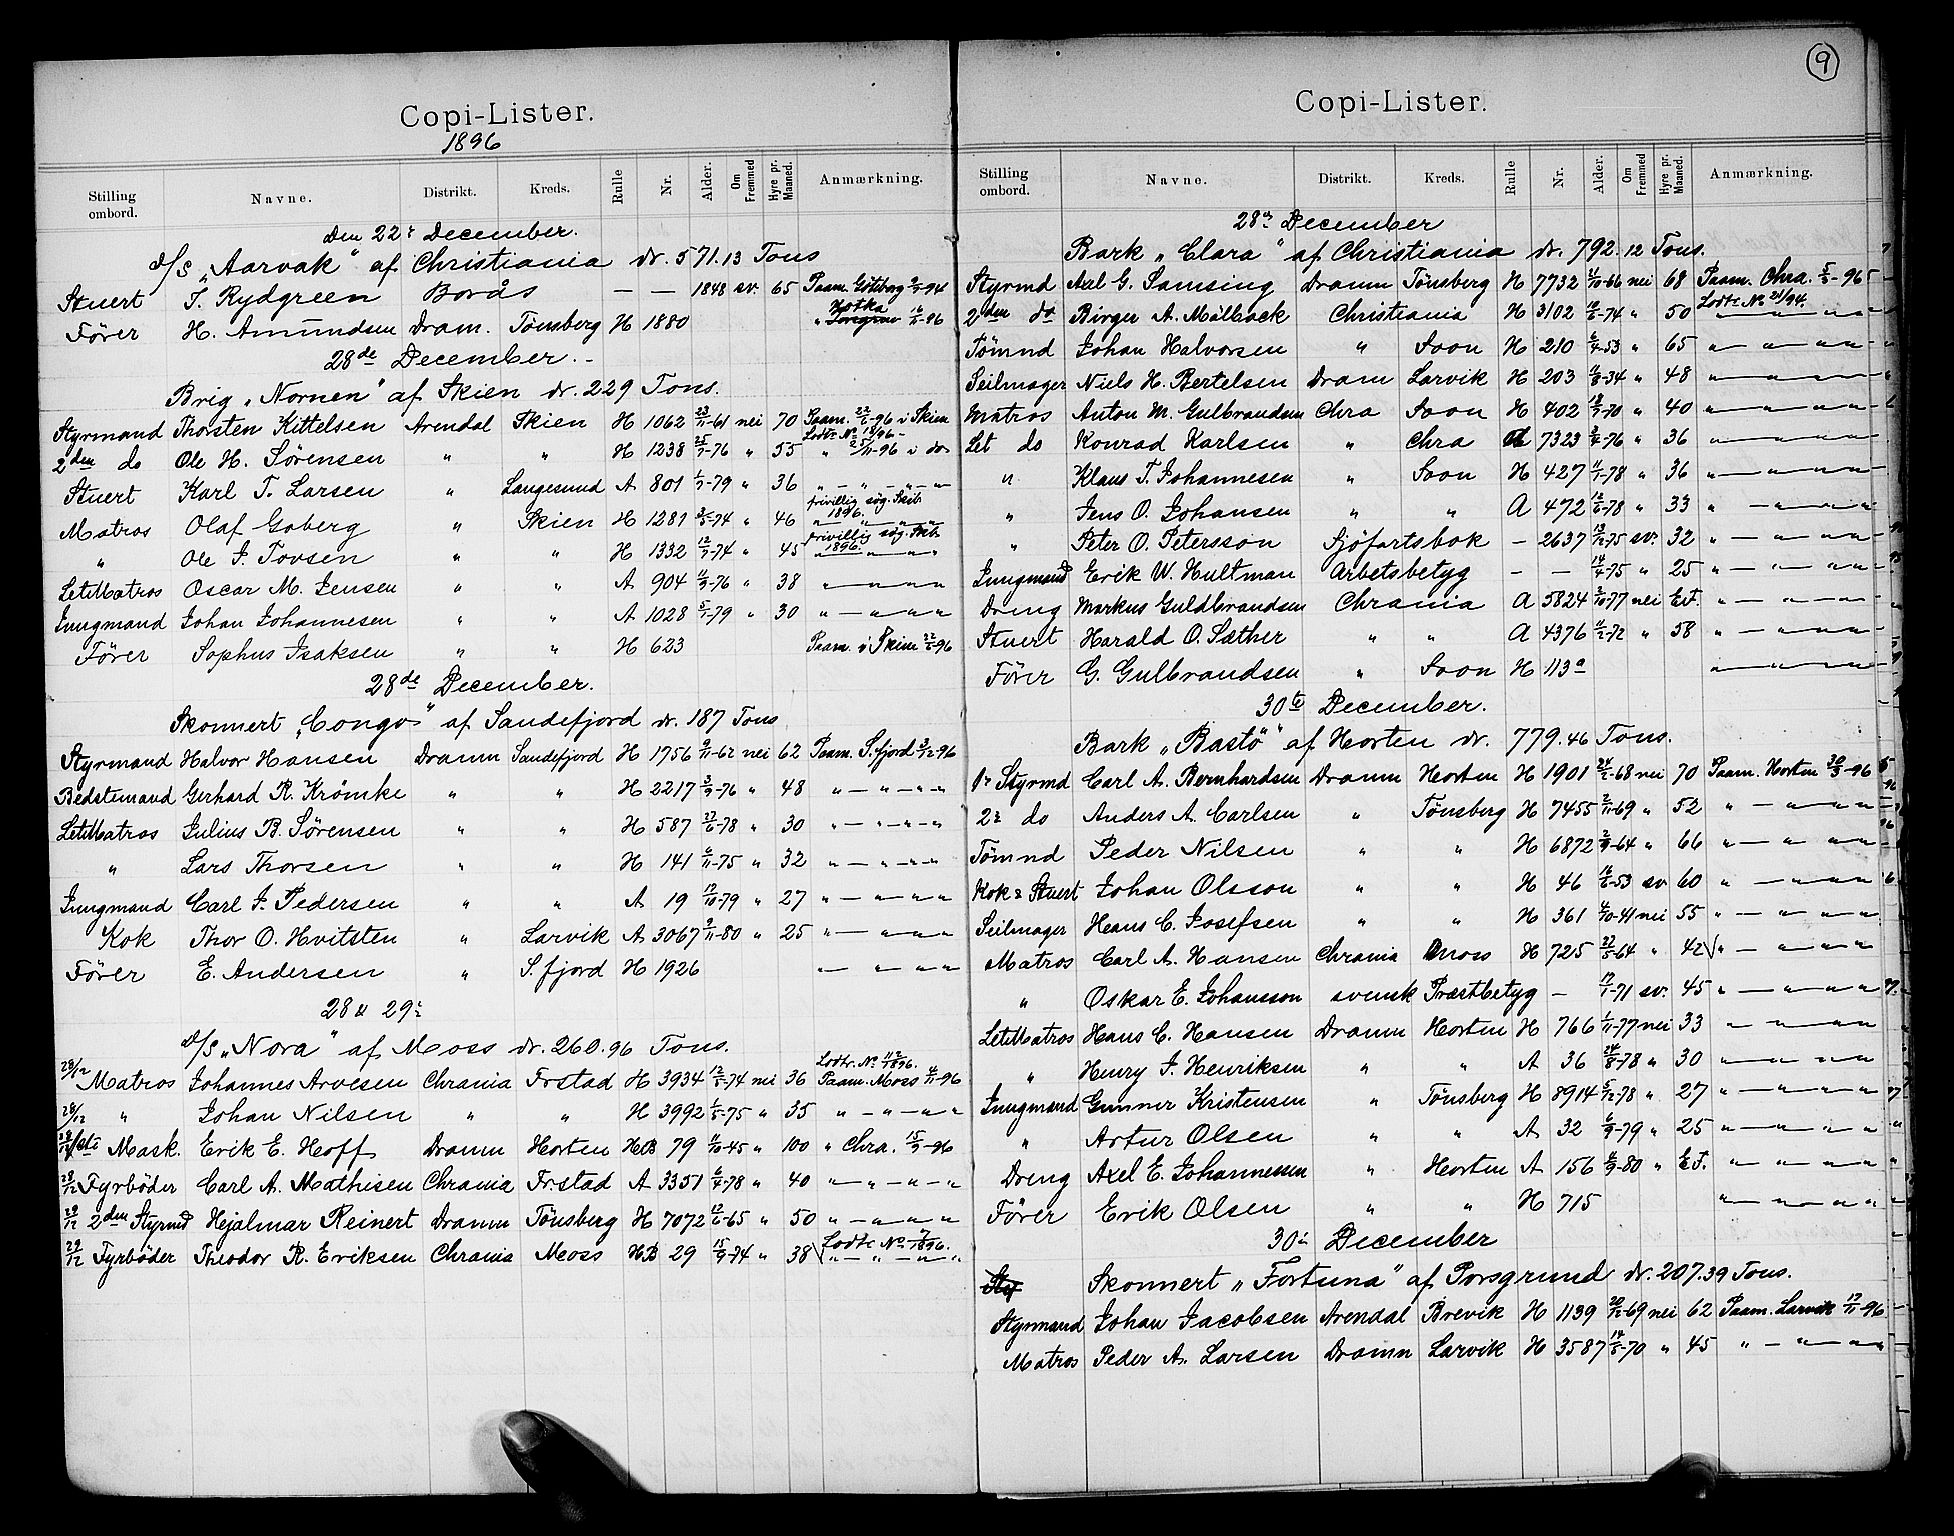 Copi-Lister.
1896
Stilling ombord. Navne. Distrikt. Kreds. Rulle Nr. Alder. Om Fremmed Hyre pr. Maaned. Anmærkning.
Den 22: December.
D/S „Aarvak" af Christiania dr. 571.13 Tons
Stuert T. Rydgreen Borås — — 1848 sv. 65 Paam. Göteborg
Kotka
Fører H. Amundsen Dram. Tønsberg H 1880
28de December. -
Brig „Nornen" af Skien dr. 229 Tons.
Styrmand Thorsten Kittelsen Arendal Skien H 1062 23/11-61 nei 70 Paam. 22/2-96 i Skien
Lodts. No 18/96 -
2den do Ole H. Sørensen " " H 1238 25/7-76 " 55 " 25/11-96 i do
Stuert Karl T. Larsen " Langesund A 801 1/7-79 " 36 " — " — " — " — "
frivillig søg. Skib
1896.
Matros Olaf Goberg " Skien H 1281 3/5-74 " 46
frivillig søg. Skib
1896.
" Ole J. Tovsen " " H 1332 12/7-74 " 45
LetMatros Oscar M. Jensen " " A 904 11/9-76 " 38 " — " — " — "
Jungmand Johan Johannesen " " A 1028 5/1-79 " 30 " — " — " — "
Fører Sophus Isaksen " " H 623 Paam. i Skien 22/2-96
28de December.
Skonnert „Congo" af Sandefjord dr. 187 Tons
Styrmand Halvor Hansen Dramn Sandefjord H 1756 9/11-62 nei 62 Paam. S.fjord 3/12-96
Bedstemand Gerhard R. Krömke " " H 2217 3/9-76 " 48 " — " — " — "
LetMatros Julius B. Sørensen " " H 587 27/6-78 " 30 " — " — " — "
" Lars Thorsen " " H 141 6/11-75 " 32 " — " — " — "
Jungmand Carl J. Pedersen " " A 19 19/10-79 " 27 " — " — " — "
Kok Thor O. Hvitsten " Larvik A 3067 9/11-80 " 25 " — " — " — "
Fører E. Andersen " S.fjord H 1926 " — " — " — "
28 & 29:
D/S „Nora" af Moss dr. 260.96 Tons.
Lodtr. No 112/1896.
28/12 Matros Johannes Arvesen Chrania Frstad H 3934 12/8-74 nei 36 Paam. Moss 4/11-96
28/12 " Johan Nilsen " " H 3992 1/8-75 " 35 " — " — " — "
Mask. Erik E. Hoff Dramn Horten HB 79 11/10-45 " 100 " Chra. 15/9-96
28/12 Fyrbøder Carl A. Mathisen Chrania Fr.stad A 3351 6/4-78 " 40 " — " — " — "
29/12 2den Styrmd Hejalmar Reinert Dramn Tønsberg H 7072 12/6-65 " 50 " — " — " — "
Lodtr No 1896.
29/12 Fyrbøder Theodor R. Eriksen Chrania Moss HB 29 15/9-74 " 38 " — " — " — "
9
Copi-Lister.
Stilling ombord. Navne. Distrikt. Kreds. Rulle Nr. Alder. Om Fremmed Hyre pr. Maaned. Anmærkning.
28de December
Bark „Clara" af Christiania dr. 792.12 Tons.
Styrmd Axl G. Samsing Dramn Tønsberg H 7732 21/10-66 nei 68 Paam. Chra. 5/5-96
Lodtr. No 21/94.
2den do Birger A. Mølback Christiania H 3102 12/2-74 " 50 " — " — " — "
Tømnd Johan Halvorsen " Soon H 210 6/4-53 " 65 " — " — " — "
Seilmager Niels H. Bertelsen Dramn Larvik H 203 11/8-34 " 48 " — " — " — "
Matros Anton M. Gulbrandsen Chra Soon H 402 18/9-70 " 40 " — " — " — "
Let do Konrad Karlsen " Chra A 7323 3/4-76 " 36 " — " — " — "
" Klaus T. Johannesen " Soon H 427 11/1-78 " 36 " — " — " — "
" Jens O. Johansen " " A 472 12/6-78 " 33 " — " — " — "
" Peter O. Petersson Sjöfartsbok - 2637 13/12-75 sv. 32 " — " — " — "
Jungmand Erik W. Hultman Arbetsbetyg - - 14/4-75 " 25 " — " — " — "
Dreng Markus Guldbrandsen Chrania A 5824 3/10-77 nei E.F. " — " — " — "
Stuert Harald O. Sæther " " A 4376 11/2-72 " 58 " — " — " — "
Fører G. Gulbrandsen " Soon H 113a " — " — " — "
30te December.
Bark „Bastö" af Horten dr. 779.46 Tons.
1r Styrmd Carl A. Bernhardsen Dramn Horten H 1901 24/2-68 nei 70 Paam. Horten 30/3-96
2r do Anders A. Carlsen " Tønsberg H 7455 2/11-69 " 52 " — " — " — "
Tømnd Peder Nilsen " " H 6872 2/9-64 " 66 " — " — " — "
Kok & Stuert Johan Olsson " " H 46 16/6-53 sv 60 " — " — " — "
Seilmager Hans C. Josefsen " " H 361 4/10-41 nei 55 " — " — " — "
Matros Carl A. Hansen Chrania Moss H 725 27/5-64 " 42 " — " — " — "
" Oskar E. Johansson svensk Præstbetyg - 17/1-71 sv. 45 " — " — " — "
LetMatros Hans C. Hansen Dramn Horten H 766 1/11-77 nei 33 " — " — " — "
" Henry J. Henriksen " " A 36 24/8-78 " 30 " — " — " — "
Jungmand Gunner Kristensen " Tønsberg H 8914 5/12-78 " 27 " — " — " — "
" Artur Olsen " " A 32 6/9-79 " 25 " — " — " — "
Dreng Axel E. Johannessen " Horten A 156 4/9-80 " E.F. " — " — " — "
Fører Erik Olsen " " H 715 " — " — " — "
30: December
Skonnert „Fortuna" af Porsgrund dr. 207.39 Tons.
Styrmand Johan Jacobsen Arendal Brevik H 1139 20/12-69 nei 62 Paam. Larvik 17/11-96
Matros Peder A. Larsen Dramn Larvik H 3587 14/5-70 " 45 " — " — " — "